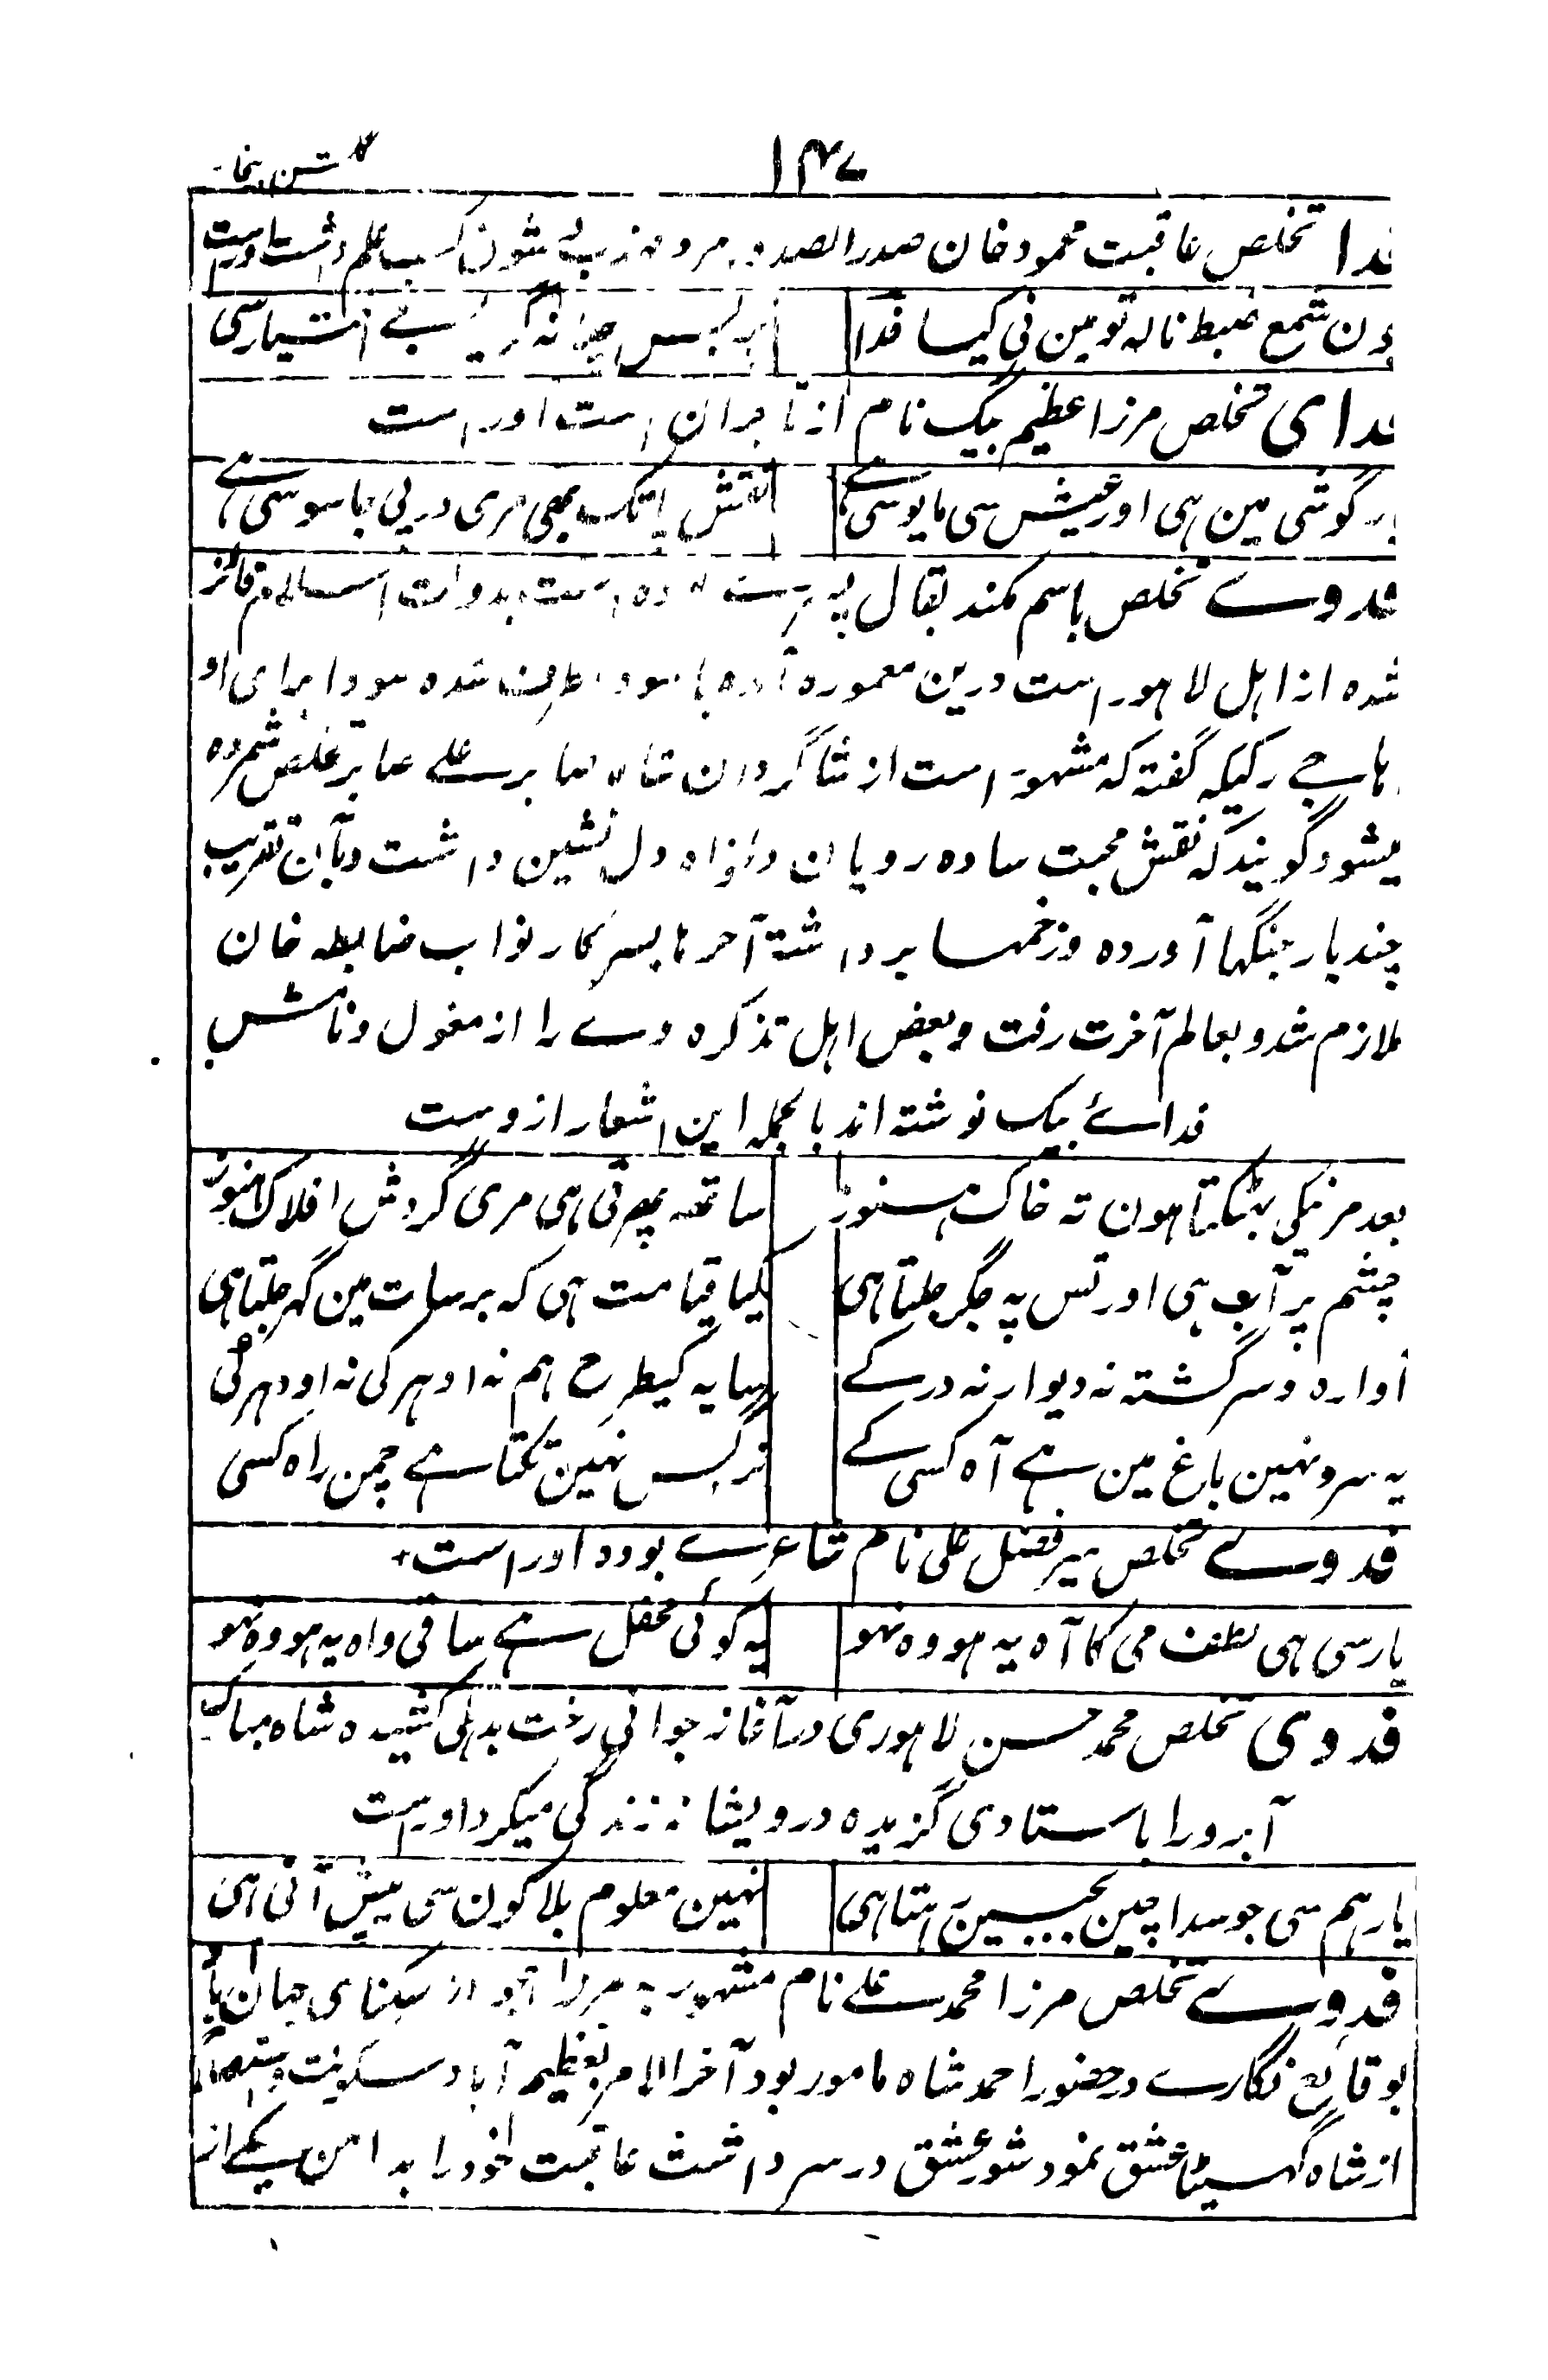 ۱۴۷
فدا تخلص عاقبت محمود خان صدر الصدور مرد مهذب بی شوق کسب علم داشت اوراست
ضبط ناله تو مین نی کیا فدا
ای تخلص مرزا عظیم بیگ نام از تاجران است اوراست
گوشی مین ہی اور عیش سی مایوسی ہے
نقش پا تک بھی مری درپی جاسوسی ہے
فدوے تخلص باسم مکند بقال بدولت اسلام فائز
شده از اہل لاہور است درین معموره آمده با سودا طرف شده سودا برای او
ہاجے رکیکہ گفتہ کہ مشہور است از شاگردان شاه صابر علے صابر تخلص شمرده
میشود گویند کہ نقش محبت ساده رویان دلخواه دل نشین داشت و بآن تقریب
چند بار جنگها آورده و زخمها برداشتہ آخرہا بسرکار نواب ضابطہ خان
ملازم شد و بعالم آخرت رفت و بعض اہل تذکرہ وے را از مغول و نامش
فدائے بیگ نوشتہ اند بالجملہ این اشعار ازوست
بعد مرنیکی بھٹکتا ہون تہ خاک ہنوز
ساتھہ پھرتی ہی مری گردش افلاک ہنوز
چشم پر آب ہی اور تس پہ جگر جلتا ہی
کیا قیامت ہی کہ برسات مین گہر جلتا ہی
آوارہ و سرگشتہ نہ دیوار نہ در کے
سایہ کیطرح ہم نہ ادہر کی نہ اودہر کی
یہ سرو نہین باغ مین ہے آہ کسی کے
نرگس نہین تکتا ہے چمن راہ کسی
فدوے تخلص میر فضل علی نام شاعرے بود و اوراست
یار سی ہی لطف می کا آہ یہ ہو وہ نہو
یہ کوئی محفل ہے ساقی واہ یہ ہو وہ نہو
فدوی تخلص محمد حسن لاہوری در آغاز جوانی رخت بدہلی کشیدہ شاہ مبارک
آبرو را باستادی گزیدہ درویشانہ زندگی میکرد اوراست
یار ہم سی جو سدا چین بجبین رہتا ہی
نہین معلوم بلا کون سی پیش آتی ہی
فدوے تخلص مرزا محمد علے نام مشہور بہ مرزا از سکنای جہان
بوقائع نگارے در حضور احمد شاہ مامور بود آخر الامر بعظیم آباد سکونت
از شاہ گهسیٹا عشق نمود شور عشق در سر داشت عاقبت خود را بدامن یکے از